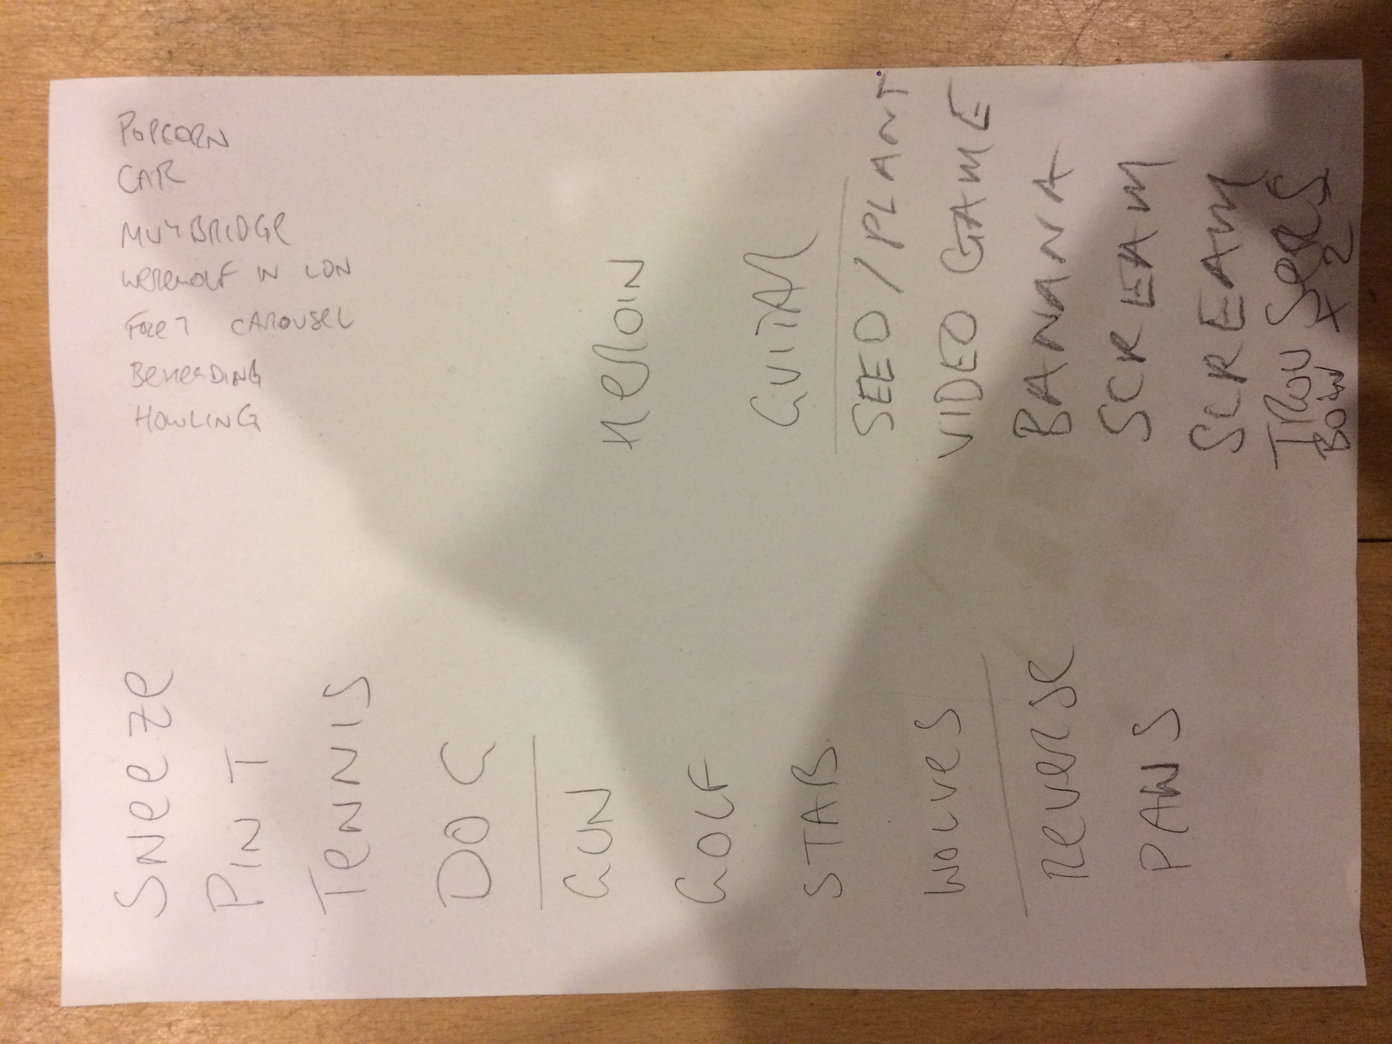 POPCORN
CAR
MUYBRIDGE
WEREWOLF IN LON
FACET CAROUSEL
BEHEADING
HOWLING
SNEEZE
PINT
TENNIS
DOG
GUN
GOLF
STAB
WOLVES
REVERSE
PAWS
HEROIN
GUITAR
SEED / PLANT
VIDEO GAME
BANANA
SCREAM
SCREAM
TROUSERS
BOW X 2